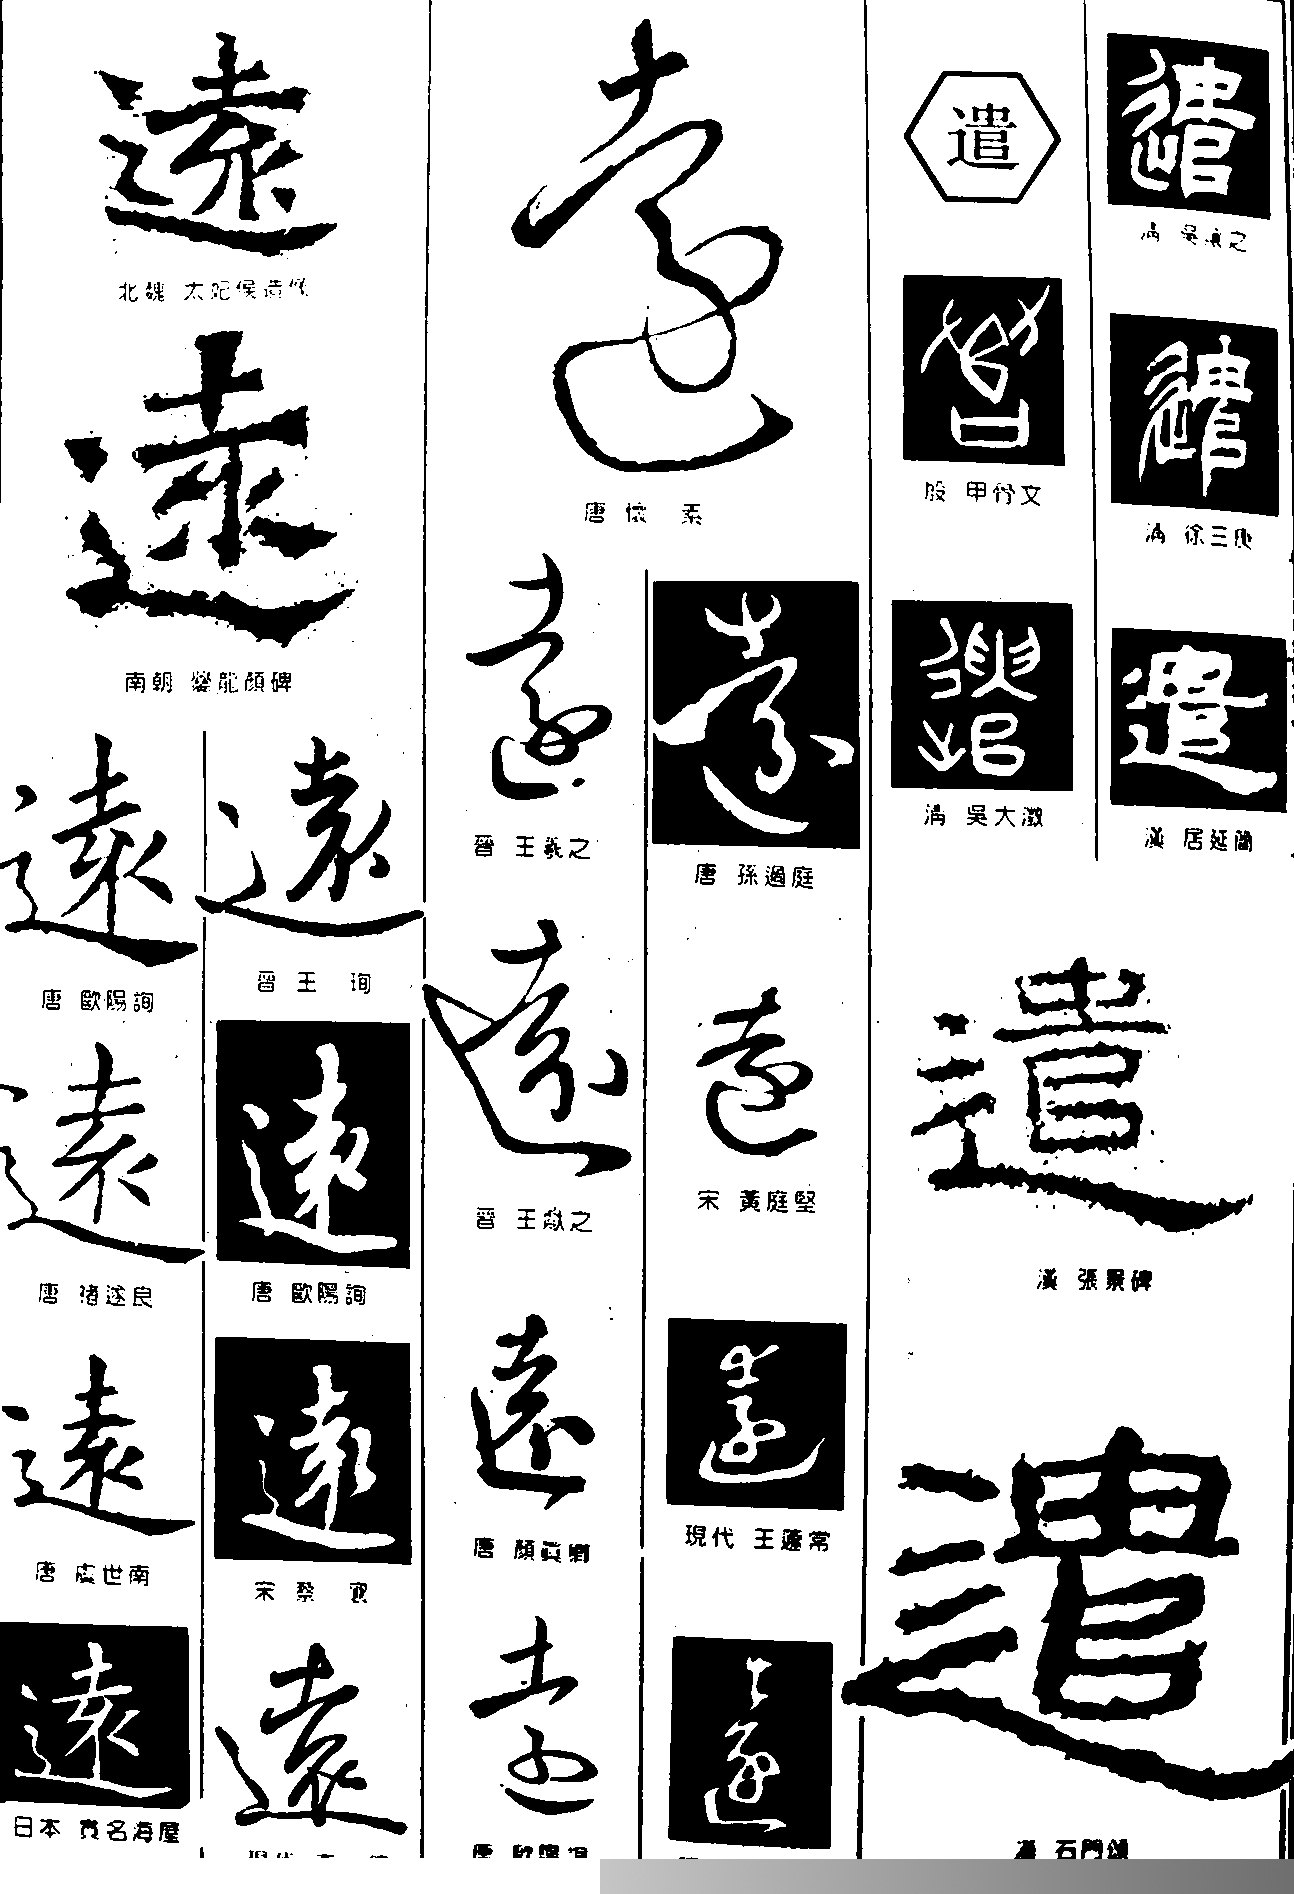 遠
北魏 太妃侯造像
遠
南朝 爨龍顏碑
遠
唐 歐陽詢
遠
唐 褚遂良
遠
唐 虞世南
遠
日本 貫名海屋
遠
晉 王 珣
遠
唐 歐陽詢
遠
宋 蔡 襄
遠
現代
遠
唐 懷 素
遠
晉 王羲之
遠
晉 王獻之
遠
唐 顏眞卿
遠
唐 歐陽詢
遠
唐 孫過庭
遠
宋 黃庭堅
遠
現代 王蘧常
遠
遣
遣
殷 甲骨文
遣
清 吳大澂
遣
清 吳讓之
遣
清 徐三庚
遣
漢 居延簡
遣
漢 張景碑
遣
漢 石門頌